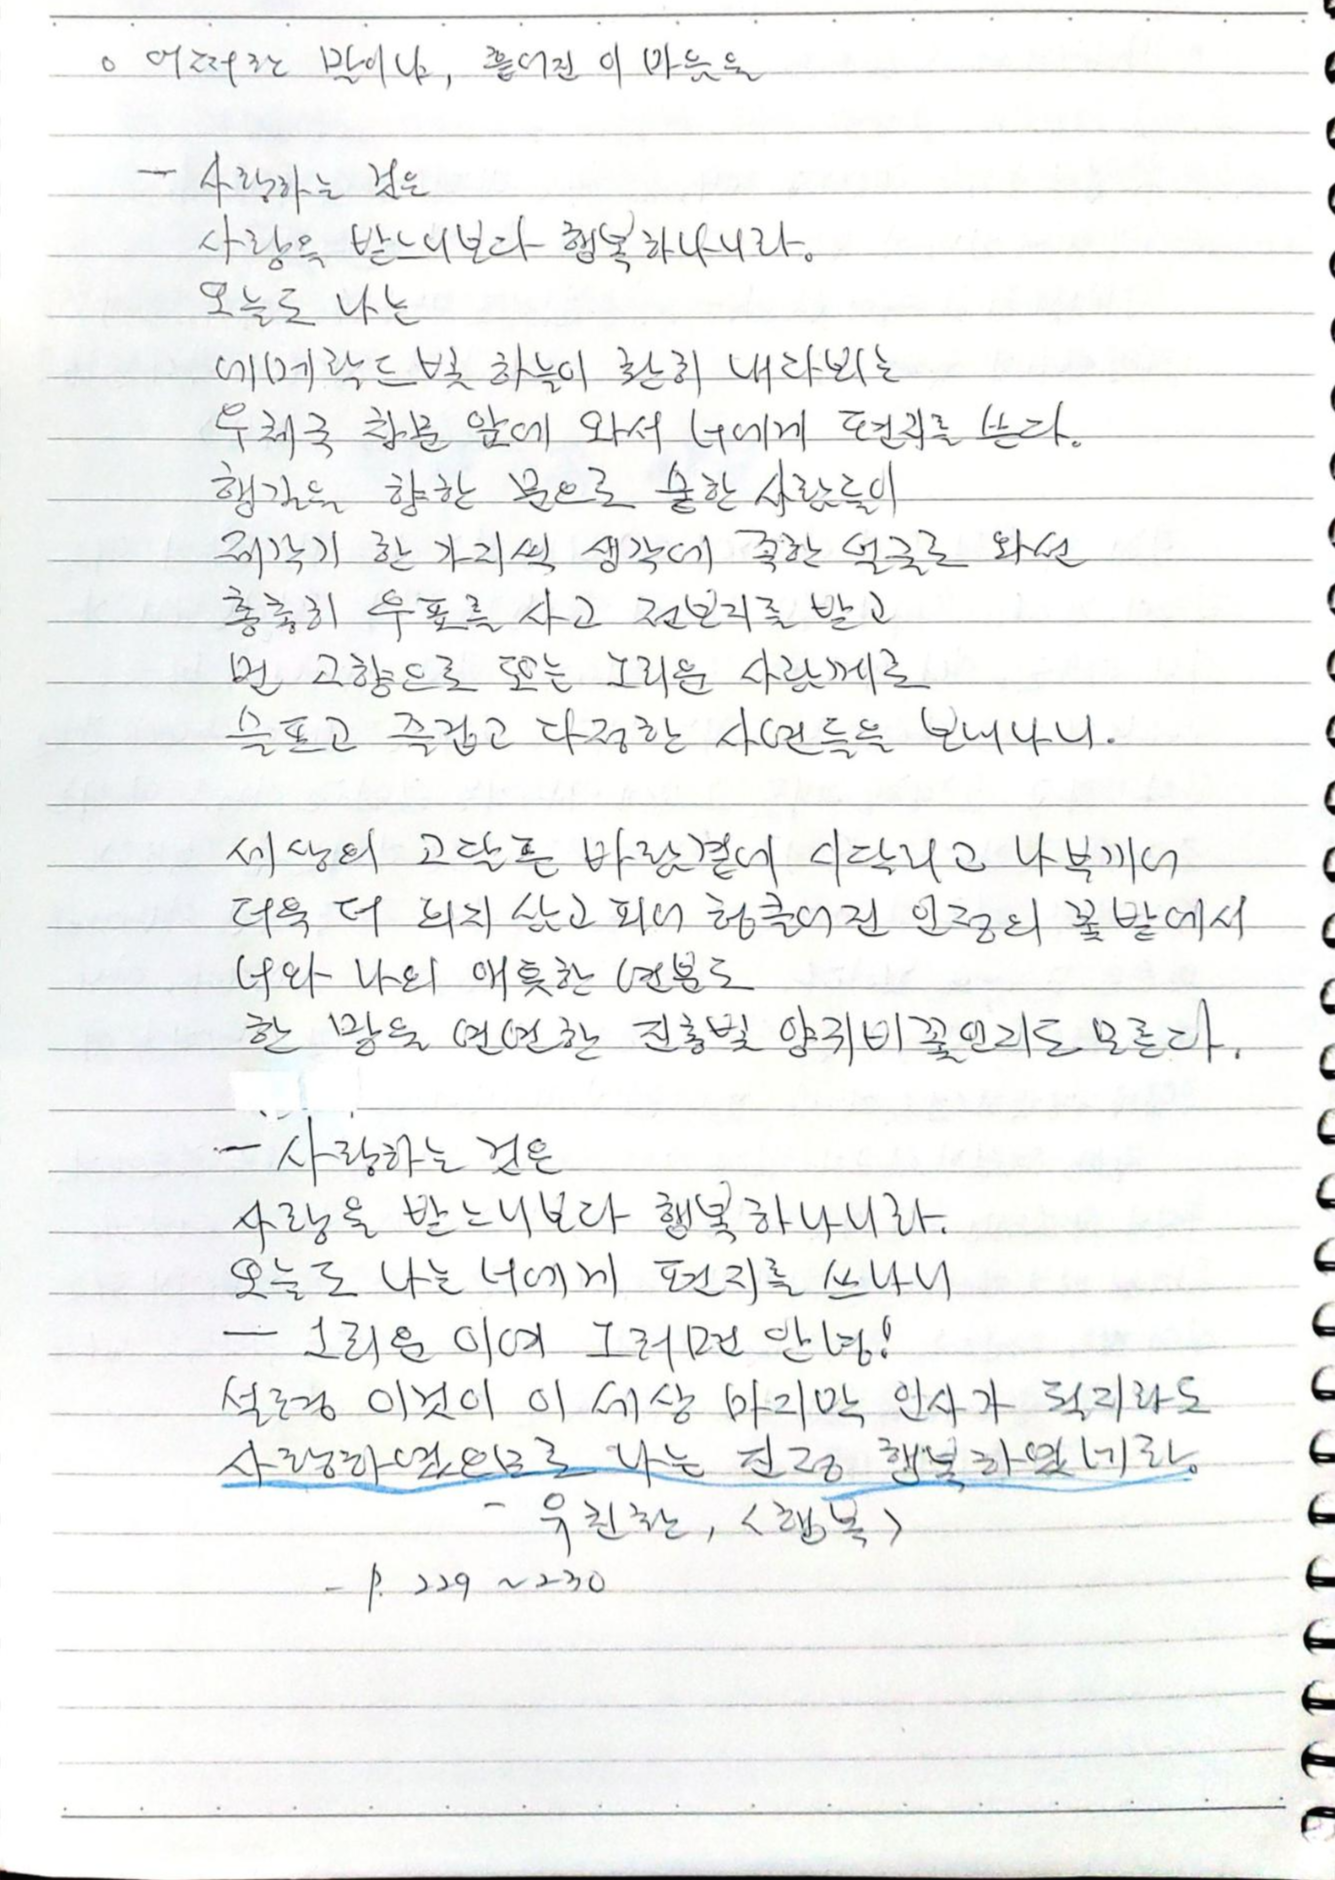 o 어쩌란 말이냐, 흩어진 이 마음을
- 사랑하는 것은
사랑을 받느니보다 행복하나니라.
오늘도 나는
에메랄드빛 하늘이 환히 내다뵈는
우체국 창문 앞에 와서 너에게 편지를 쓴다.
행길을 향한 문으로 숱한 사람들이
제각기 한 가지씩 생각에 족한 얼굴로 와선
총총히 우표를 사고 전보지를 받고
먼 고향으로 또는 그리운 사람께로
슬프고 즐겁고 다정한 사연들을 보내나니.
세상의 고달픈 바람결에 시달리고 나부끼어
더욱 더 의지 삼고 피어 헝클어진 인정의 꽃밭에서
너와 나의 애틋한 연분도
한 망울 연연한 진홍빛 양귀비꽃인지도 모른다.
- 사랑하는 것은
사랑을 받느니보다 행복하나니라.
오늘도 나는 너에게 편지를 쓰나니
- 그리운 이여 그러면 안녕!
설령 이것이 이 세상 마지막 인사가 될지라도
사랑하였으므로 나는 진정 행복하였네라.
- 유치환, <행복>
- p. 229 ~ 230